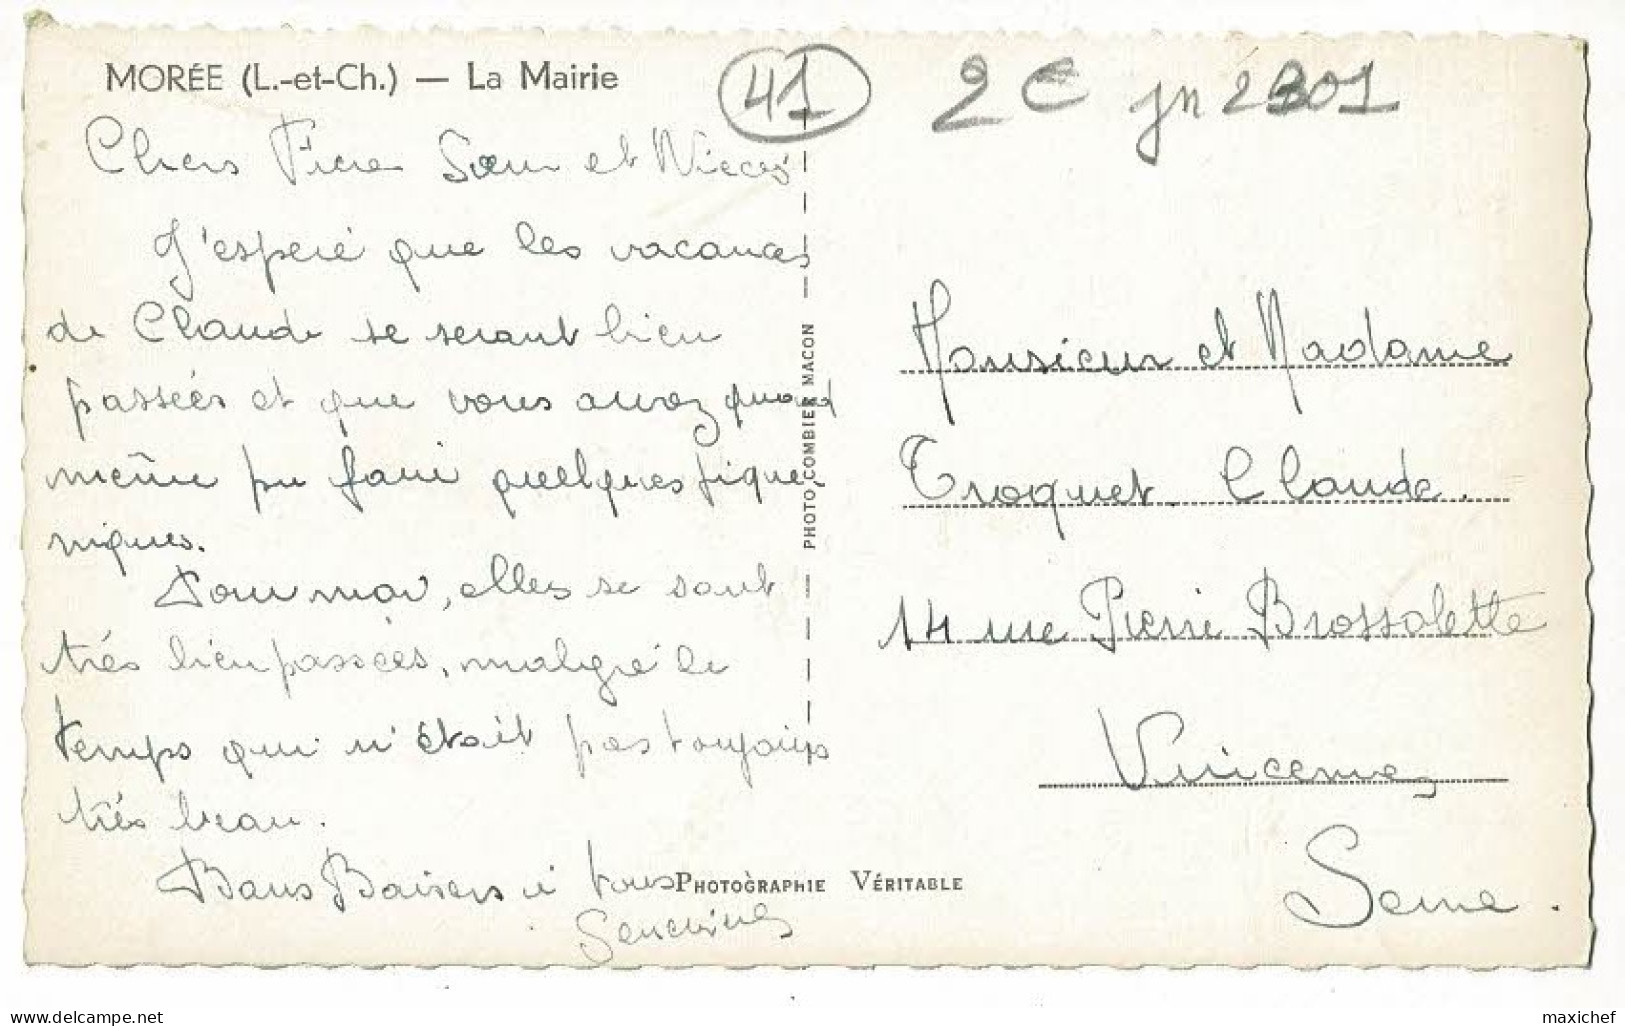 MORÉE (L.-et-Ch.) — La Mairie
41
2 € jn 2301
Chers Frere Sœur et Nieces
J'esperé que les vacances
de Claude se seront bien
passées et que vous avez quand
même pu faire quelques pique-
niques.
Pour moi, elles se sont
trés bien passées, malgré le
temps qui n'était pas toujours
trés beau.
Bons Baisers à tous
Geneviève
PHOTO COMBIER MACON
PHOTOGRAPHIE VÉRITABLE
Monsieur et Madame
Troquet Claude.
14 rue Pierre Brossolette
Vincennes
Seine.
www.delcampe.net
maxichef